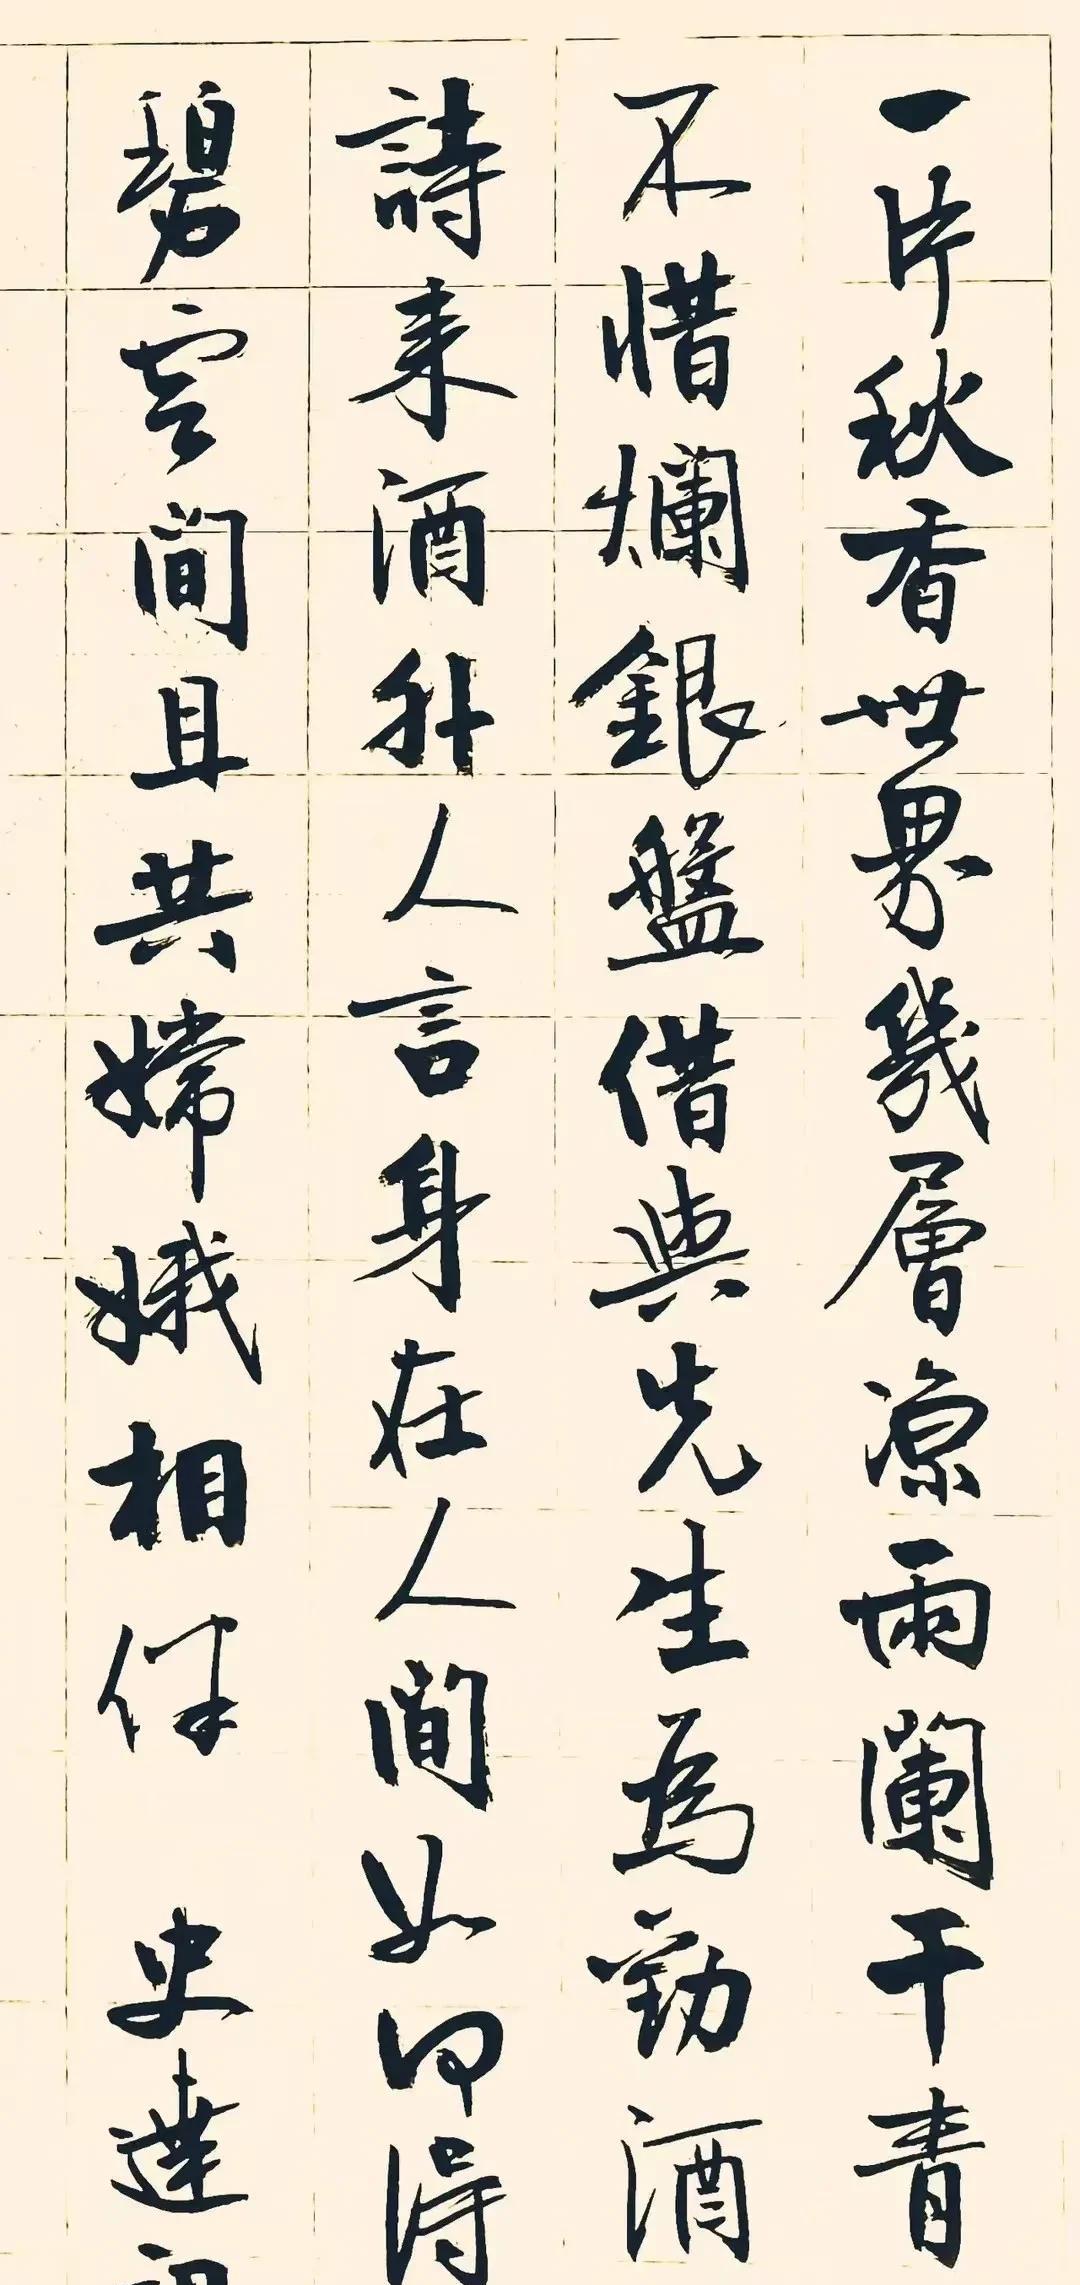 一片秋香世界幾層凉雨闌干青
不惜爛銀盤借與先生為勸酒
詩来酒外人言身在人間如何得
碧雲間且共嫦娥相伴 史達